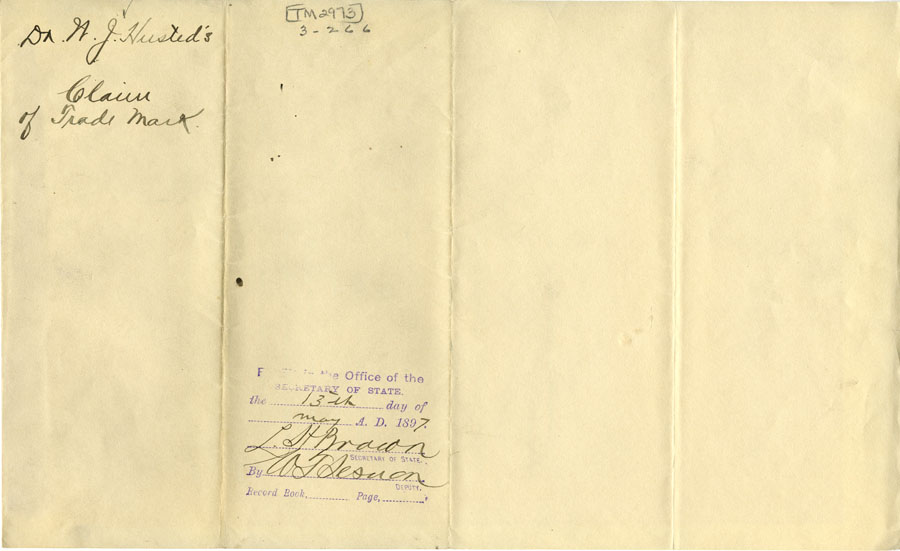 Dr. W. J. Husted's
Claim
of Trade Mark.
TM2973
3-266
in the Office of the
SECRETARY OF STATE.
the 13th day of
May A. D. 1897.
L. H. Brown
SECRETARY OF STATE.
By
DEPUTY.
Record Book, Page,